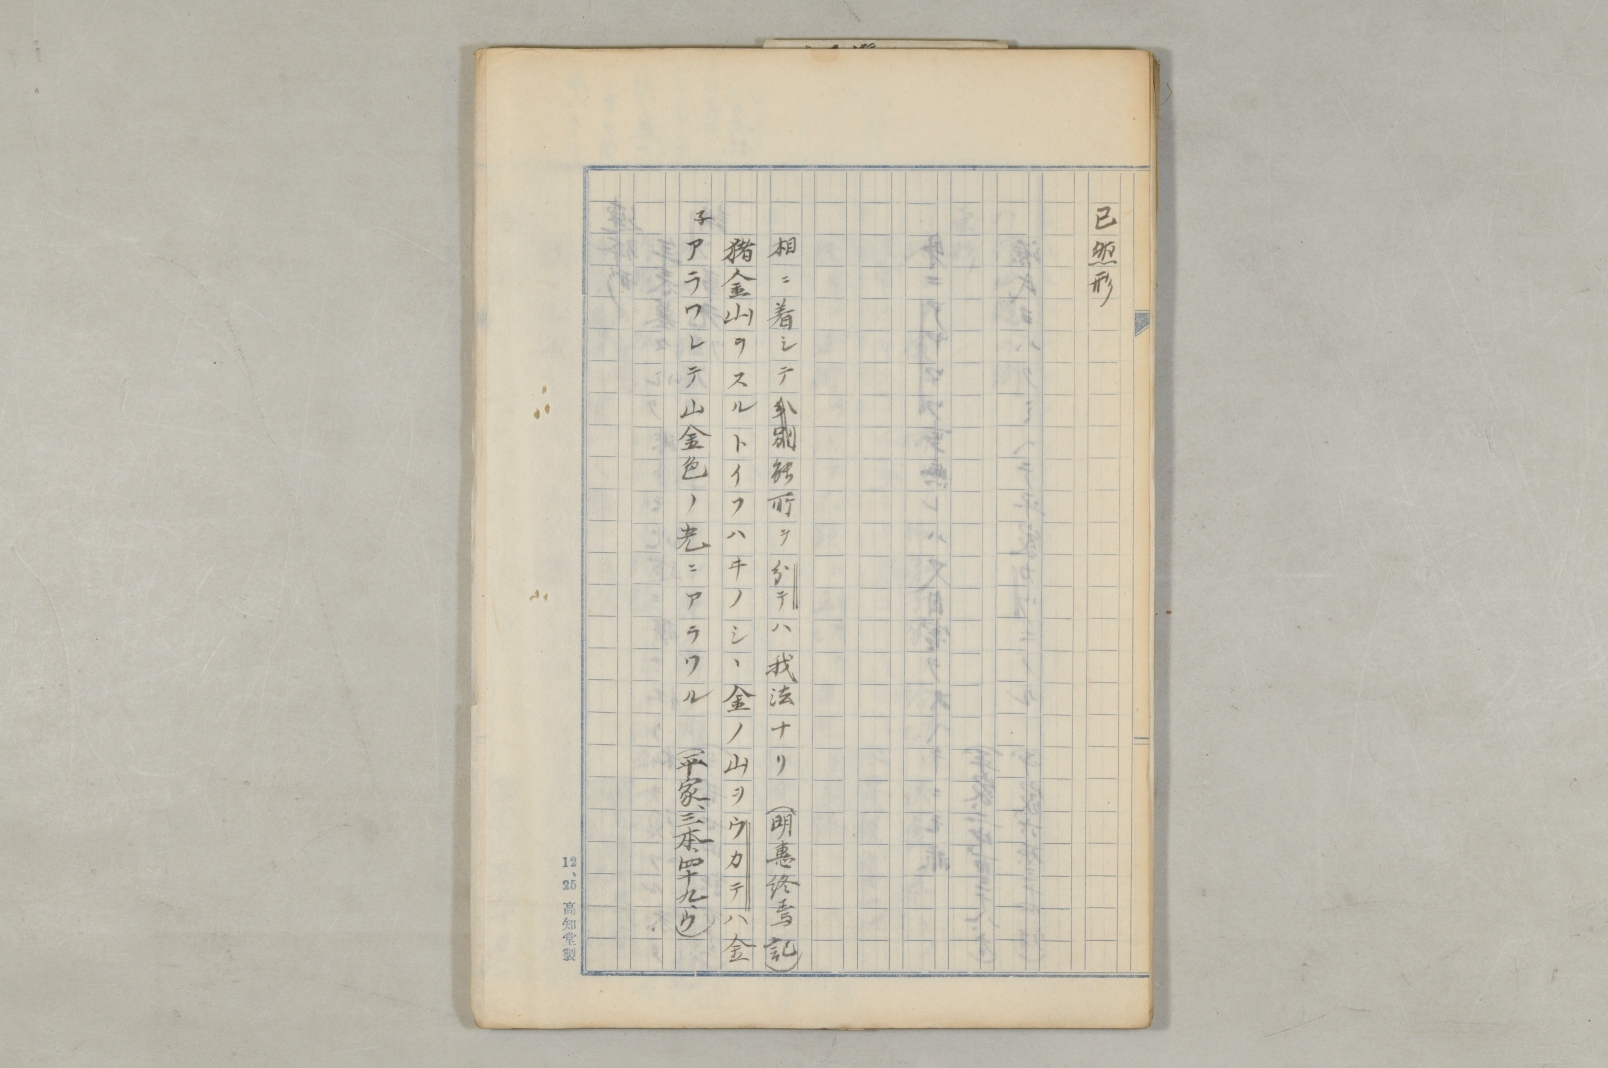 已然形
相ニ着シテ分別能所ヲ分テハ我法ナリ（明惠終焉記）
猪金山ヲスルトイフハキノシヽ金ノ山ヲウカテハ金
子アラワレテ山金色ノ光ニアラワル（平家、三本、四十九、ウ）
12、25 高知堂製